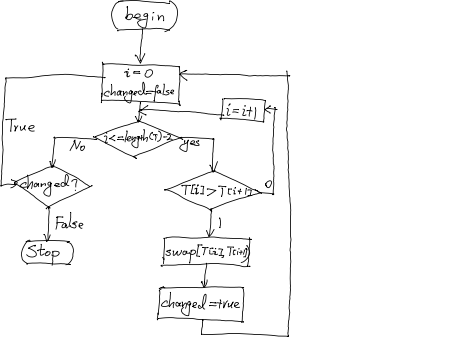 begin
i=0
changed=false
i=i+1
i<=length(T)-2
True
No
yes
changed?
T[i]>T[i+1]
0
False
1
Stop
swap[T[i],T[i+1])
changed=true